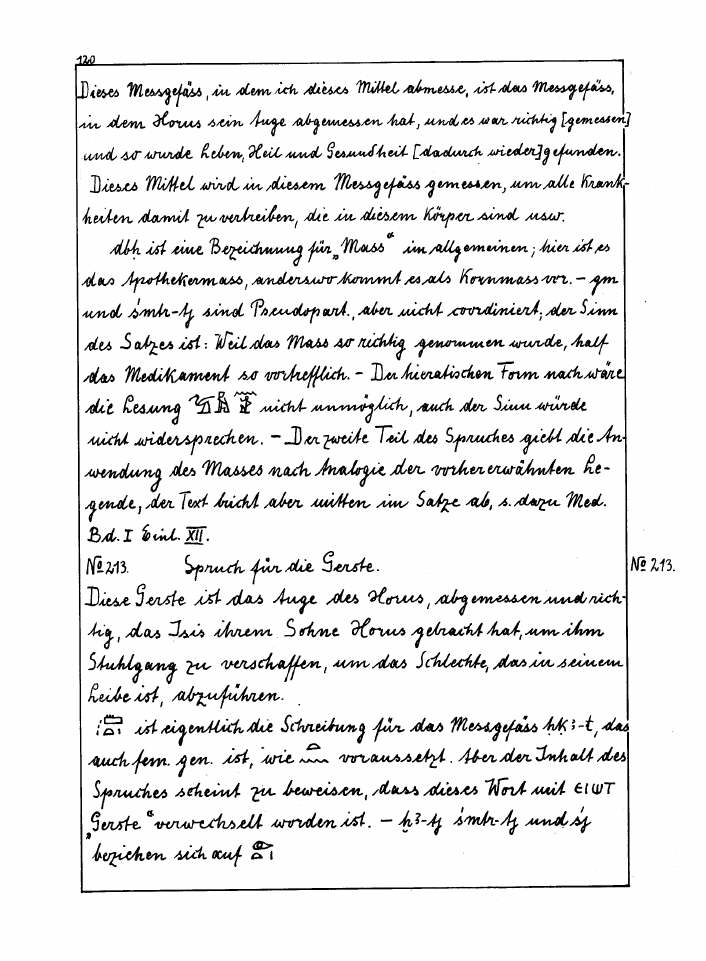 120
Dieses Messgefäss, in dem ich dieses Mittel abmesse, ist das Messgefäss,
in dem Horus sein Auge abgemessen hat, und es war richtig [gemessen]
und so wurde Leben, Heil und Gesundheit [dadurch wieder] gefunden.
Dieses Mittel wird in diesem Messgefäss gemessen, um alle Krank-
heiten damit zu vertreiben, die in diesem Körper sind usw.
dbḥ ist eine Bezeichnung für „Mass“ im allgemeinen; hier ist es
das Apothekermass, anderswo kommt es als Kornmass vor. – gm
und śmtr-tj sind Pseudopart., aber nicht coordiniert; der Sinn
des Satzes ist: Weil das Mass so richtig genommen wurde, half
das Medikament so vortrefflich. – Der hieratischen Form nach wäre
die Lesung nicht unmöglich, auch der Sinn würde
nicht widersprechen. – Der zweite Teil des Spruches giebt die An-
wendung des Masses nach Analogie der vorher erwähnten Le-
gende, der Text bricht aber mitten im Satze ab, s. dazu Med.
Bd. I Einl. XII.
No 213. Spruch für die Gerste. No 213.
Diese Gerste ist das Auge des Horus, abgemessen und rich-
tig, das Isis ihrem Sohne Horus gebracht hat, um ihm
Stuhlgang zu verschaffen, um das Schlechte, das in seinem
Leibe ist, abzuführen.
ist eigentlich die Schreibung für das Messgefäss ḥḳꜣ-t, das
auch fem. gen. ist, wie voraussetzt. Aber der Inhalt des
Spruches scheint zu beweisen, dass dieses Wort mit ⲉⲓⲱⲧ
„Gerste“ verwechselt worden ist. – ḫꜣ-tj śmtr-tj und śj
beziehen sich auf